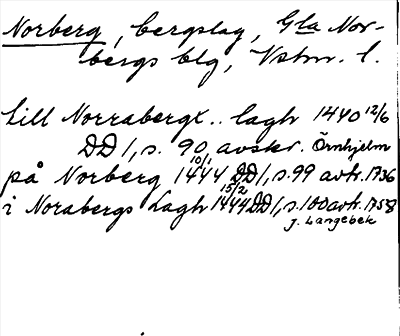 Norberg, bergslag, Gla Nor-
bergs blg, Vstm. l.
till Norrabergx.. lagh 1440 12/6
DD 1, s. 90, avskr. Örnhjelm
på Norberg 1444 10/1 DD 1, s. 99 avtr. 1736
i Norabergs Lagh 1444 15/2 DD 1, s. 100 avtr. 1758
J. Langebek